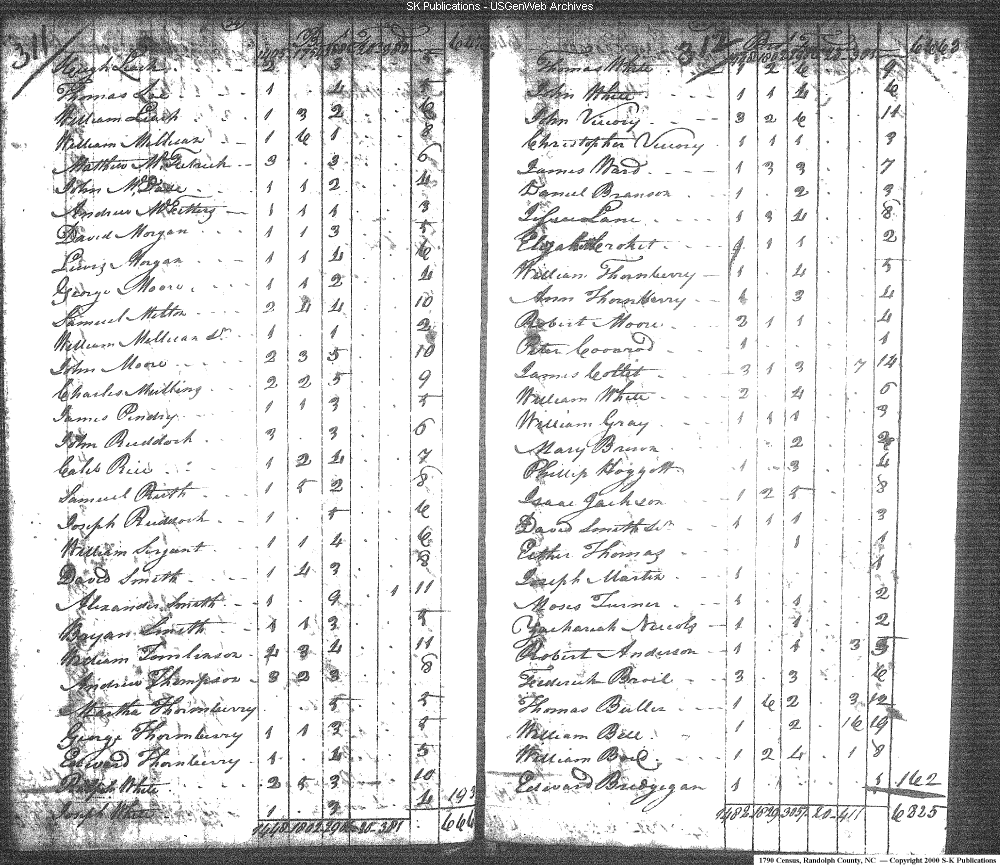 SK Publications - USGenWeb Archives
311
Joseph Leach 2 . 3 . . 5
Thomas Lee 1 . 4 . . 5
William Leach 1 3 2 . . 6
William Millican 1 6 1 . . 8
Mathew 3 . 3 . . 6
John 1 1 2 . . 4
Andrew 1 1 1 . . 3
David Morgan 1 1 3 . . 5
Lewis Morgan 1 1 4 . . 6
George Moore 1 1 2 . . 4
Samuel Milton 2 4 4 . . 10
William Millican Sr 1 . 1 . . 2
John Moore 2 3 5 . . 10
Charles Milling 2 2 5 . . 9
James Pendry 1 1 3 . . 5
John Ruddock 3 . 3 . . 6
Caleb Rice 1 2 4 . . 7
Samuel Ruth 1 5 2 . . 8
Joseph Ruddock 1 . 5 . . 6
William Sergant 1 1 4 . . 6
David Smith 1 4 3 . . 8
Alexander Smith 1 . 9 . 1 11
Bryan Smith 1 1 3 . . 5
William Tomlinson 4 3 4 . . 11
Andrew Thompson 3 2 3 . . 8
Martha Thornberry . . 5 . . 5
George Thornberry 1 1 3 . . 5
Edward Thornberry 1 . 4 . . 5
Ralph White 2 5 3 . . 10
Joseph White 1 . 3 . . 4 193
312
6463
Thomas White 1 2 6 . . 9
John White 1 1 4 . . 6
John Vicory 3 2 6 . . 11
Christopher Vicory 1 1 1 . . 3
James Ward 1 3 3 . . 7
Daniel Branson 1 . 2 . . 3
Lane 1 3 4 . . 8
Elizabeth 1 1 . . 2
William Thornberry 1 . 4 . . 5
Ann Thornberry 1 . 3 . . 4
Robert Moore 2 1 1 . . 4
Peter 1 . . . . 1
James Coltit 3 1 3 . 7 14
William White 2 . 4 . . 6
William Gray 1 1 1 . . 3
Mary Brown . . 2 . . 2
Phillip Hoggott 1 . 3 . . 4
Isaac Jackson 1 2 5 . . 8
David Smith Sr 1 1 1 . . 3
Esther Thomas . . 1 . . 1
Joseph Martin 1 . . . . 1
Moses Turner 1 . 1 . . 2
Zachariah Nucols 1 . 1 . . 2
Robert Anderson 1 . 1 . 3 5
Frederick Broil 3 . 3 . . 6
Thomas Buller 1 6 2 . 3 12
William Bell 1 . 2 . 16 19
William 1 2 4 . 1 8
Edward Bridgegan 1 . . . . 1 162
6825
1790 Census, Randolph County, NC — Copyright 2000 S-K Publications